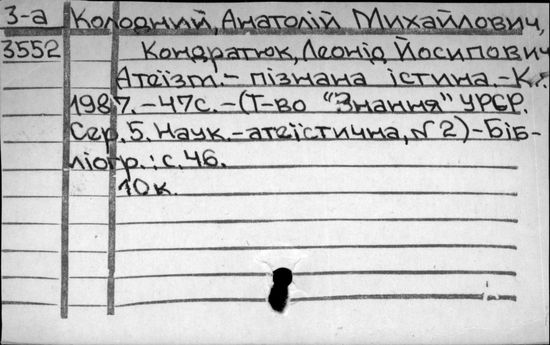 3-а Колодний, Анатолій Михайлович,
3552 Кондратюк, Леонід Йосипович
Атеїзм.- пізнана істина.-К.:
1987.-47с.-(Т-во "Знання" УРСР.
Сер.5. Наук.-атеїстична, №2)-Біб-
ліогр.: с.46.
10к.